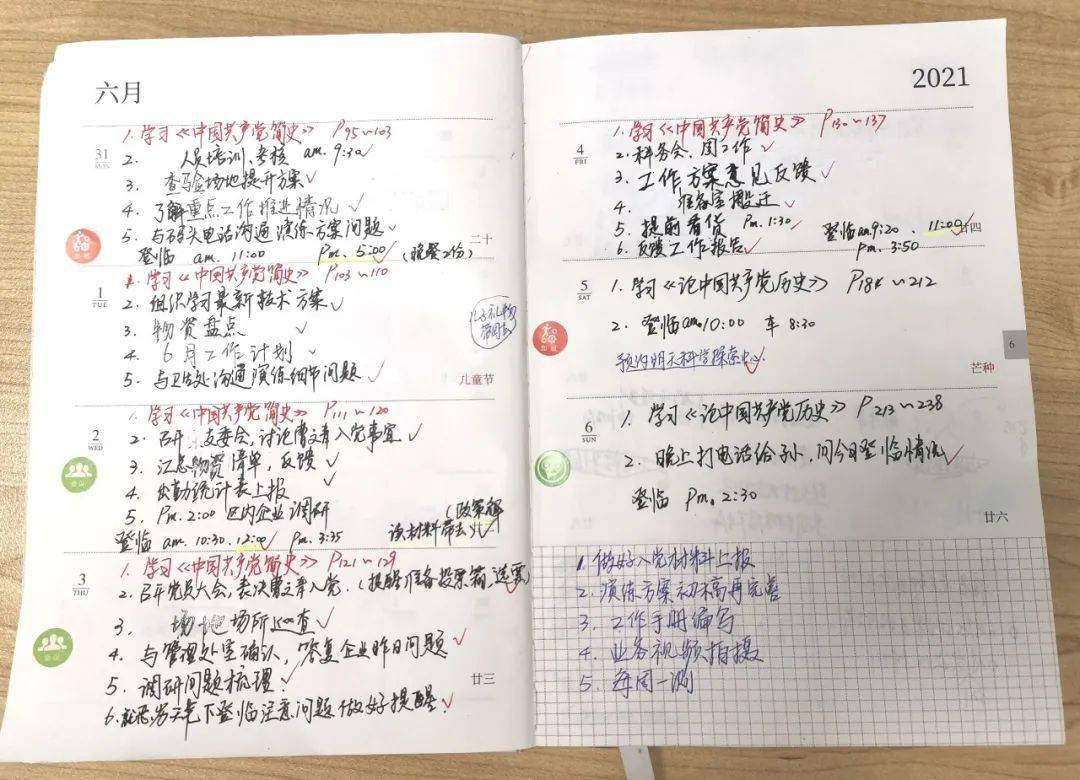 六月
31
MON
1. 学习《中国共产党简史》 P95~103
2. 人员培训、考核 am. 9:30
3. 查验场地提升方案
4. 了解重点工作推进情况
5. 与码头电话沟通演练方案问题
登临 am. 11:00 Pm. 5:00 (晚餐2份)
二十
1
TUE
1. 学习《中国共产党简史》 P103~110
2. 组织学习最新技术方案
3. 物资盘点
4. 6月工作计划
5. 与卫生处沟通演练细节问题
儿童节
2
WED
1. 学习《中国共产党简史》 P111~120
2. 召开 支委会,讨论曹文章入党事宜
3. 汇总物资清单,反馈
4. 出勤统计表上报
5. Pm. 2:00 区内企业调研 (政策解读材料带去)
登临 am. 10:30. 12:00 Pm. 3:35
3
THU
1. 学习《中国共产党简史》 P121~129
2. 召开党员大会,表决曹文章入党. (提醒准备投票箱、选票)
3. 场地场所巡查
4. 与管理处室确认,答复企业昨日问题
5. 调研问题梳理.
6. 天气下登临注意问题做好提醒.
廿三
2021
4
FRI
1. 学习《中国共产党简史》 P130~137
2. 科务会、周工作
3. 工作方案意见反馈
4. 准备室搬迁
5. 提前看货 Pm. 1:30
6. 反馈工作报告
登临 am. 9:20 、 11:00
pm. 3:50
廿四
5
SAT
1. 学习《论中国共产党历史》 P184~212
2. 登临 am. 10:00 车 8:30
预约明天科学探索
6
芒种
6
SUN
1. 学习《论中国共产党历史》 P213~238
2. 晚上打电话给孙,问今日登临情况
登临 Pm. 2:30
廿六
1. 做好入党材料上报
2. 演练方案初稿再完善
3. 工作手册编写
4. 业务视频拍摄
5. 每周一测